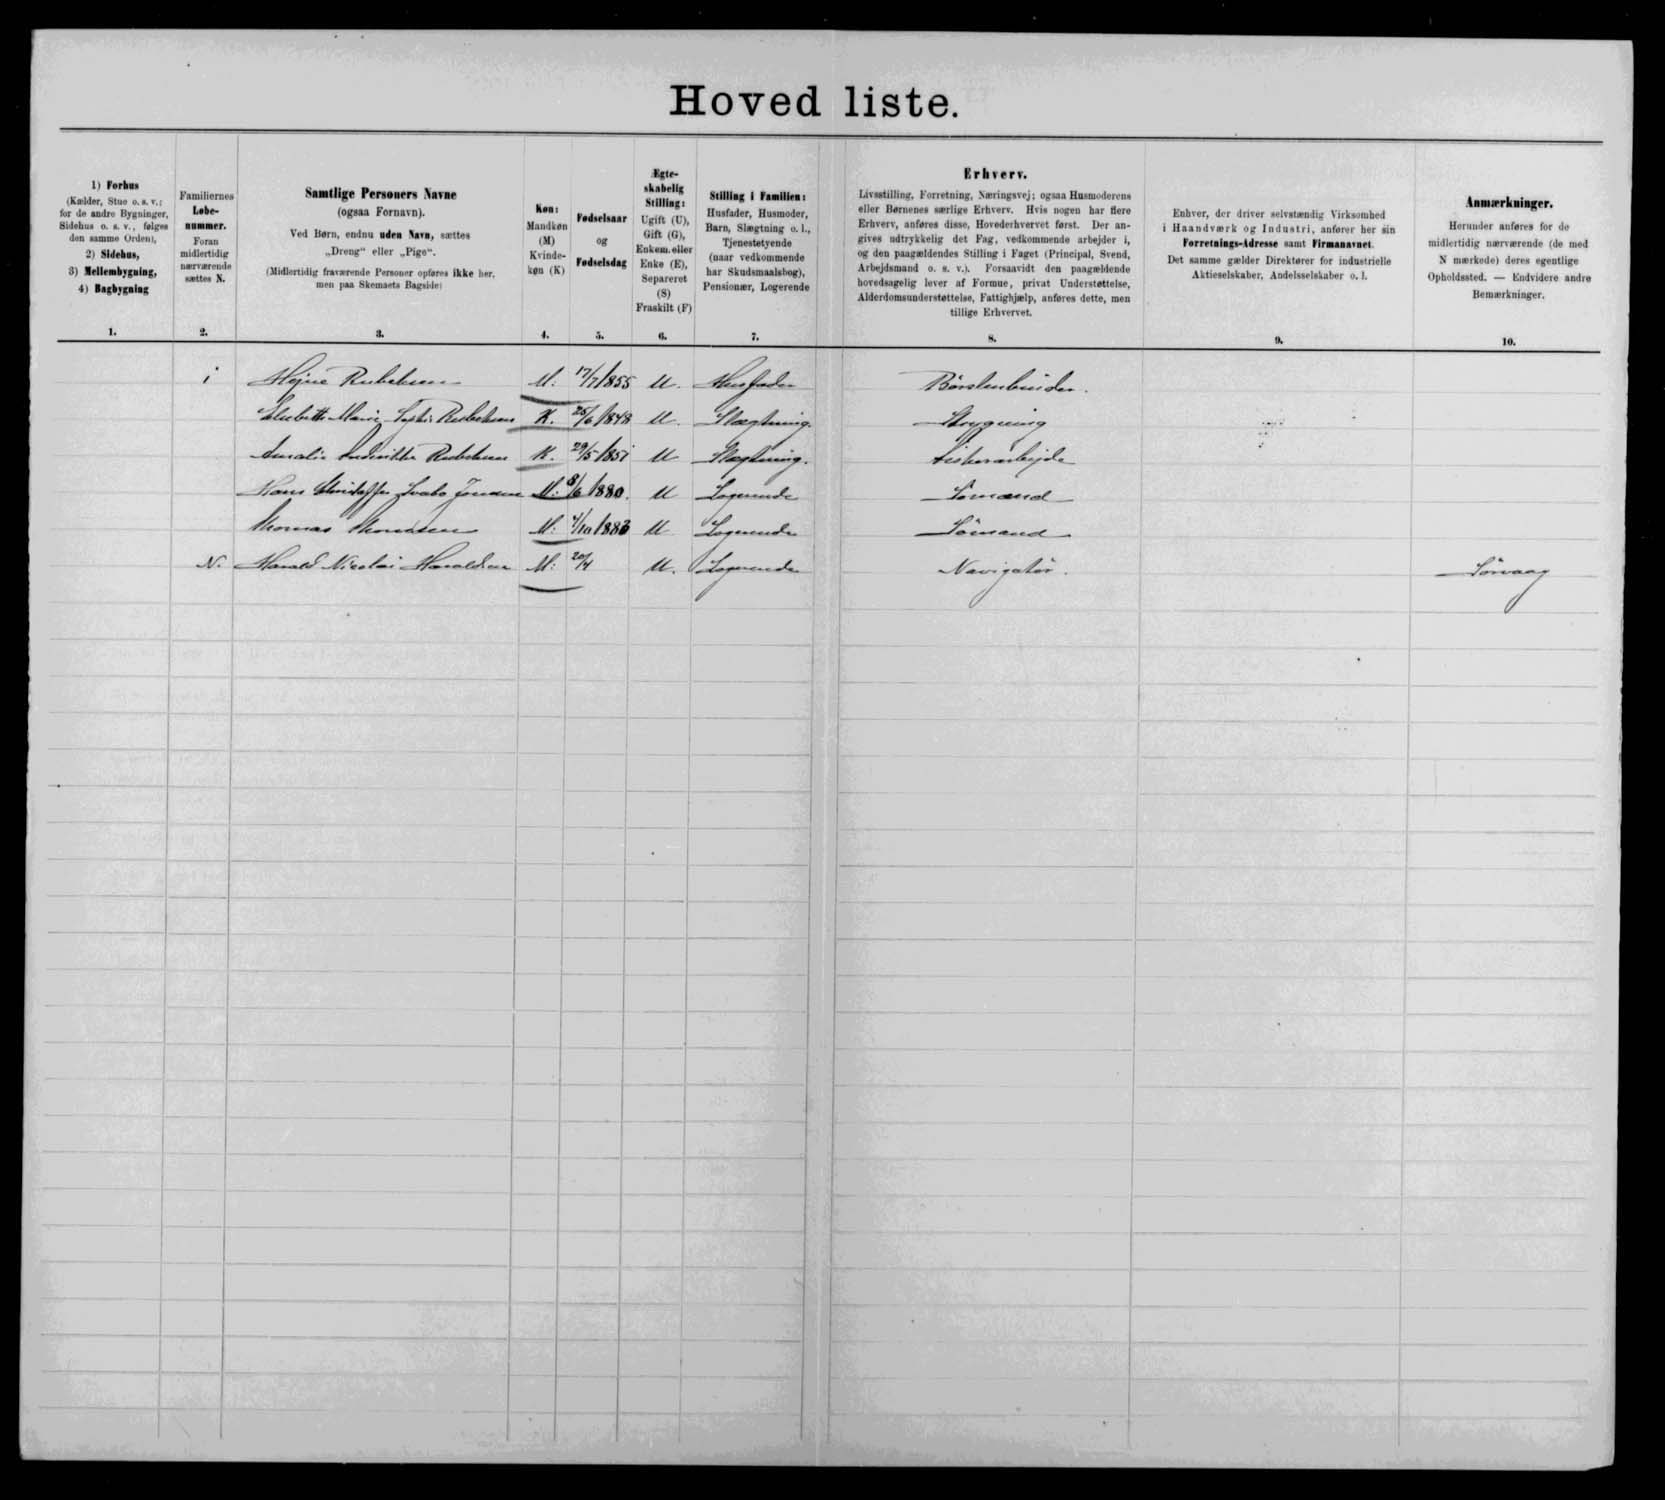 Hoved liste.
1) Forhus
(Kælder, Stue o. s. v.;
for de andre Bygninger,
Sidehus o. s. v., følges
den samme Orden),
2) Sidehus,
3) Mellembygning,
4) Bagbygning
1.
Familiernes
Løbe-
nummer.
Foran
midlertidig
nærværende
sættes N.
2.
Samtlige Personers Navne
(ogsaa Fornavn).
Ved Børn, endnu uden Navn, sættes
„Dreng“ eller „Pige“.
(Midlertidig fraværende Personer opføres ikke her,
men paa Skemaets Bagside)
3.
Køn:
Mandkøn
(M)
Kvinde-
køn (K)
4.
Fødselsaar
og
Fødselsdag
5.
Ægte-
skabelig
Stilling:
Ugift (U),
Gift (G),
Enkem. eller
Enke (E),
Separeret
(S)
Fraskilt (F)
6.
Stilling i Familien:
Husfader, Husmoder,
Barn, Slægtning o. l.,
Tjenestetyende
(naar vedkommende
har Skudsmaalsbog),
Pensionær, Logerende
7.
Erhverv.
Livsstilling, Forretning, Næringsvej; ogsaa Husmoderens
eller Børnenes særlige Erhverv. Hvis nogen har flere
Erhverv, anføres disse, Hovederhvervet først. Der an-
gives udtrykkelig det Fag, vedkommende arbejder i,
og den paagældendes Stilling i Faget (Principal, Svend,
Arbejdsmand o. s. v.). Forsaavidt den paagældende
hovedsagelig lever af Formue, privat Understøttelse,
Alderdomsunderstøttelse, Fattighjælp, anføres dette, men
tillige Erhvervet.
8.
Enhver, der driver selvstændig Virksomhed
i Haandværk og Industri, anfører her sin
Forretnings-Adresse samt Firmanavnet.
Det samme gælder Direktører for industrielle
Aktieselskaber, Andelsselskaber o. l.
9.
Anmærkninger.
Herunder anføres for de
midlertidig nærværende (de med
N mærkede) deres egentlige
Opholdssted. — Endvidere andre
Bemærkninger.
10.
1 Højne Rubeksen M. 17/7 1855 U. Husfader Börstenbinder.
Elisabeth Marie Sophie Rubeksen K. 25/6 1848 U. Slægtning. Strygning
Amalie Frederikke Rubeksen K. 29/5 1851 U Slægtning. Fiskerarbejde
Hans Christoffer Svabo Jensen M. 8/6 1880. U Logerende Sömand
Thomas Thomsen M. /10 1883 U Logerende Sömand
N. Harald Nicolai Haraldsen M. 20/4 U. Logerende Navigatör. Sörvaag